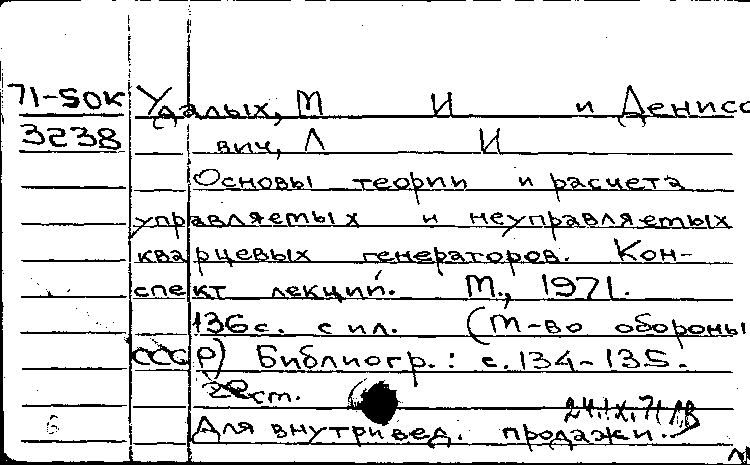 71-50К Удалых, М И и Денисо
3238 вич, Л И
Основы теории и расчета
управляемых и неуправляемых
кварцевых генераторов. Кон-
спект лекций. М., 1971.
136с. с ил. (М-во обороны
СССР) Библиогр.: с.134-135.
22см.
24.IX.71 ЛВ
Для внутривед. продажи.
6